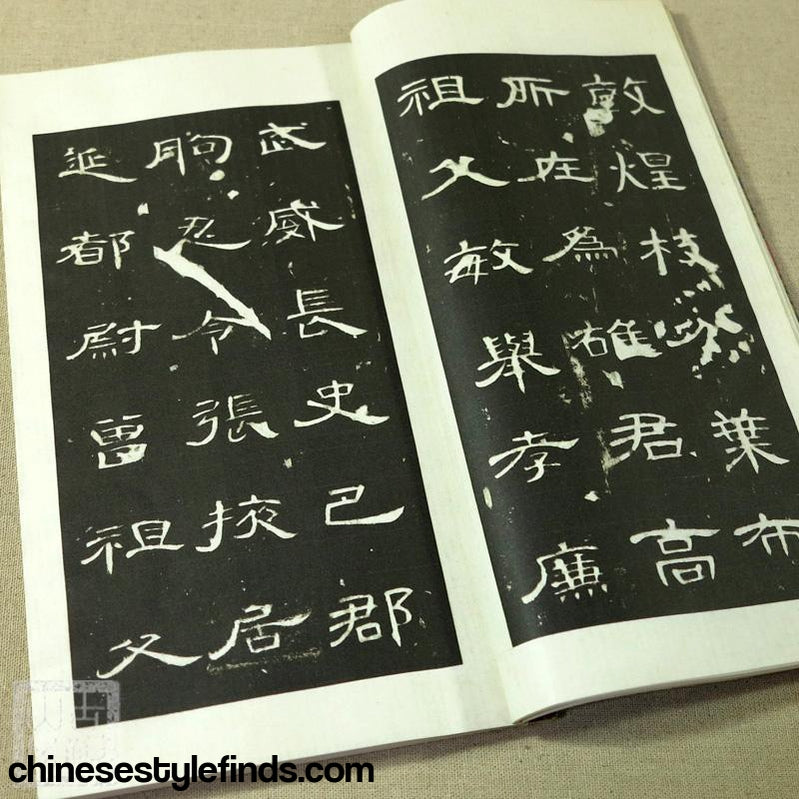 敦煌枝分葉布
所在為雄君高
祖父敏舉孝廉
武威長史巴郡
朐忍令張掖居
延都尉曾祖父
chinesestylefinds.com